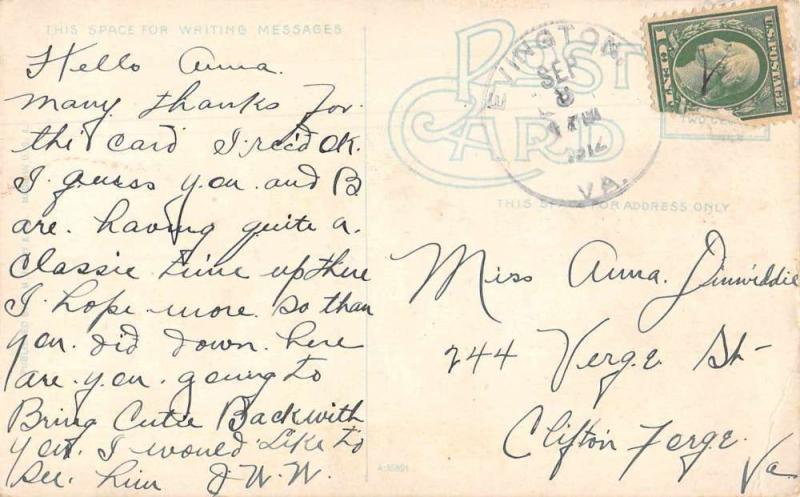 THIS SPACE FOR WRITING MESSAGES
Hello Anna.
Many thanks for
the card I rec'd OK.
I guess you and B
are having quite a
classie time up there
I hope more so than
you did down here
are you going to
Bring Cutie Back with
you I would Like to
see him J W. W.
POST
CARD
EVINGTON,
SEP
3
1912
VA.
U.S. POSTAGE
1 CENT
THIS SPACE FOR ADDRESS ONLY
Miss Anna Dinwiddie
244 Verge St-
Clifton Forge.
Va